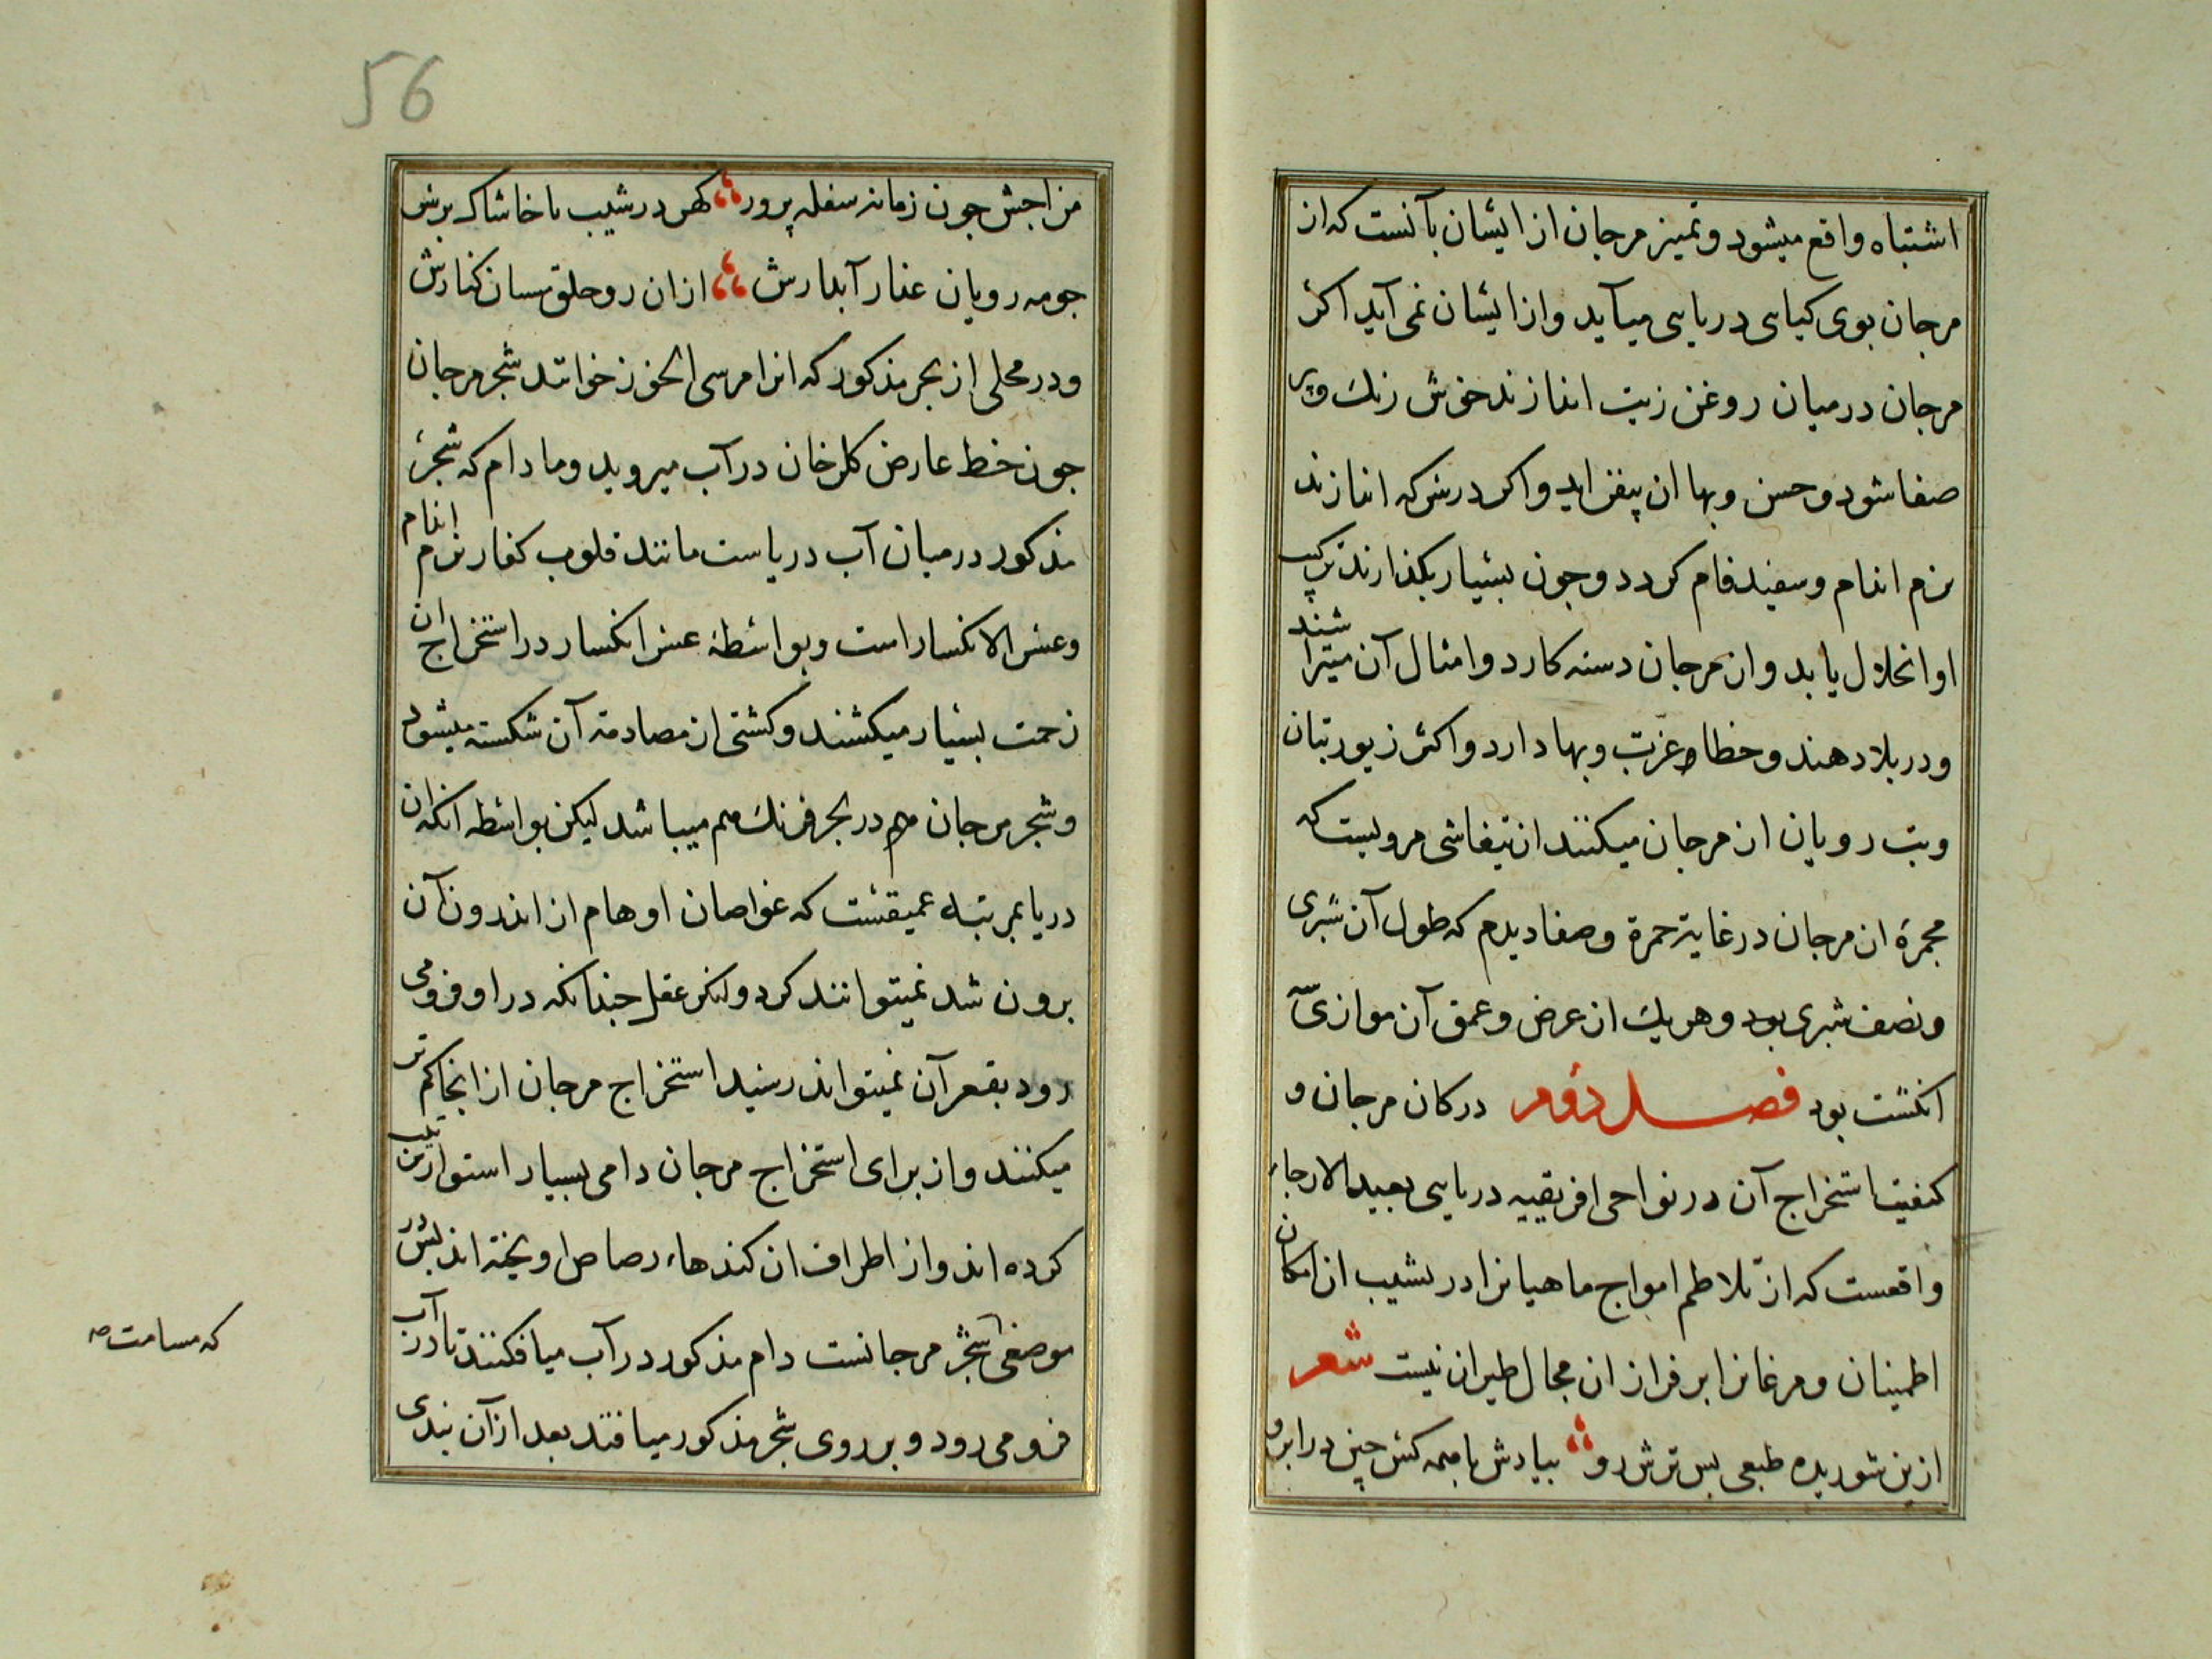 اشتباه واقع میشود و تمیز مرجان از ایشان بآنست که از
مرجان بوی کیاهی دریایی میآید و از ایشان نمی آید اکر
مرجان در میان روغن زیت اندازند خوش رنك و پر
صفا شود و حسن و بهاء ان بیفزاید و اکر در سرکه اندازند
نرم اندام و سفید فام کردد و چون بسیار بکذارند ترکیب
او انحلال یابد و از مرجان دسته کارد و امثال آن میتراشند
و در بلاد هند و خطا عزت و بها دارد و اکثر زیور بتان
و بت رویان از مرجان میکنند از تیفاشی مرویست که
مجمرهٔ از مرجان در غایة حمرة و صفا دیدم که طول آن شبری
و نصف شبری بود و هر یك از عرض و عمق آن موازی سه
انکشت بود فصل دوم در کان مرجان و
کیفیت استخراج آن در نواحی افریقیه دریایی بعید الارجاء
واقعست که از تلاطم امواج ماهیانرا در نشیب ان امکان
اطمینان و مرغانرا بر فراز ان مجال طیران نیست شعر
ازین شوریده طبعی بس ترش رو بیادش با همه کش چین در ابرو
56
مزاجش چون زمانه سفله پرور کهر در شیب با خاشاک بر سر
چو مه رویان عذار آبدارش ازان رو حلق بسان کنارش
و در محلی از بحر مذکور که انرا مرسی الخرز خوانند شجر مرجان
چون خط عارض کلرخان در آب میروید و مادام که شجرهٔ
مذکور در میان آب دریاست مانند قلوب کفار نرم اندام
و عسر الانکسار است و بواسطهٔ عسر انکسار در استخراج ان
زحمت بسیار میکشند و کشتی از مصادمه آن شکسته میشود
و شجر مرجان هم در بحر فرنك هم میباشد لیکن بواسطه انکه ان
دریا بمرتبه عمیقست که غواصان اوهام از اندرون آن
برون شد نمیتوانند کرد و لنکر عقل چندانکه در او فرو می
رود بقعر آن نمیتواند رسید استخراج مرجان از انجا کم تر
میکنند و از برای استخراج مرجان دامی بسیار استوار ترتیب
کرده اند و از اطراف ان کندهاء رصاص اویخته اند پس در
موضعی شجر مرجانست دام مذکور در آب میافکنند تا در آب
فرو می رود و بر روی شجر مذکور میافتد بعد از آن بندی
که مسامت صه